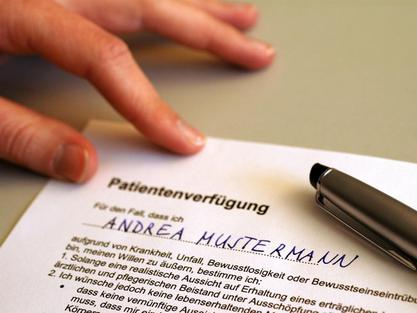 Patientenverfügung
Für den Fall, dass ich
ANDREA MUSTERMANN
aufgrund von Krankheit, Unfall, Bewusstlosigkeit oder Bewusstseinseintrüb
bin, meinen Willen zu äußern, bestimme ich:
1. Solange eine realistische Aussicht auf Erhaltung eines erträglichen
ärztlichen und pflegerischen Beistand unter Ausschöpfung
2. Ich wünsche jedoch keine lebenserhaltenden
• dass keine vernünftige
muss, dass mir